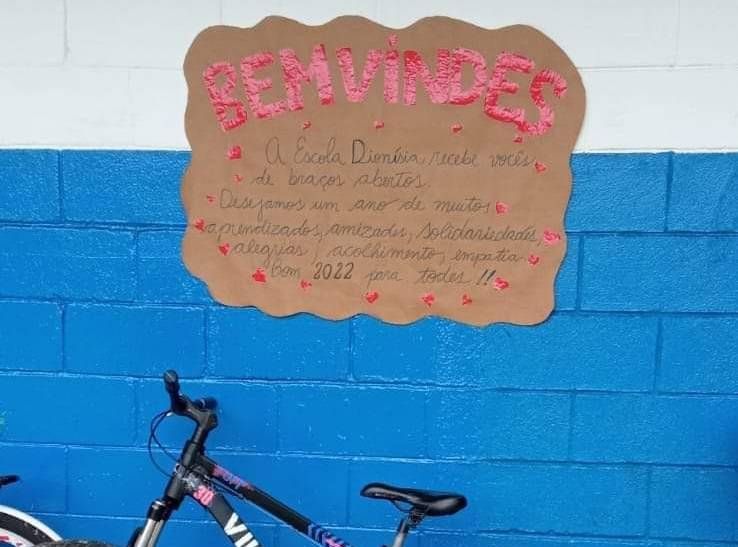 BEMVINDES
A Escola Dionísia recebe vocês
de braços abertos.
Desejamos um ano de muitos
aprendizados, amizades, solidariedades,
alegrias, acolhimento, empatia
Bom 2022 para todes !!
30